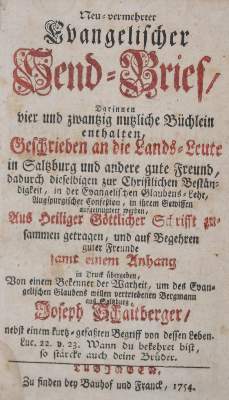 Neu-vermehrter
Evangelischer
Send-Brief/
Darinnen
vier und zwantzig nutzliche Büchlein
enthalten,
Geschrieben an die Lands-Leute
in Saltzburg und andere gute Freund,
dadurch dieselbigen zur Christlichen Bestän-
digkeit, in der Evangelischen Glaubens-Lehr,
Augspurgischer Confession, in ihrem Gewissen
aufgemuntert werden,
Aus Heiliger Göttlicher Schrifft zu-
sammen getragen, und auf Begehren
guter Freunde
samt einem Anhang
in Druck übergeben,
Von einem Bekenner der Warheit, um des Evan-
gelischen Glaubens willen vertriebenen Bergmann
aus Saltzburg,
Joseph Schaitberger,
nebst einem kurtz-gefaßten Begriff von dessen Leben.
Luc. 22. v. 23. Wann du bekehret bist,
so stärcke auch deine Brüder.
TUBINGEN,
Zu finden bey Bauhof und Franck, 1754.